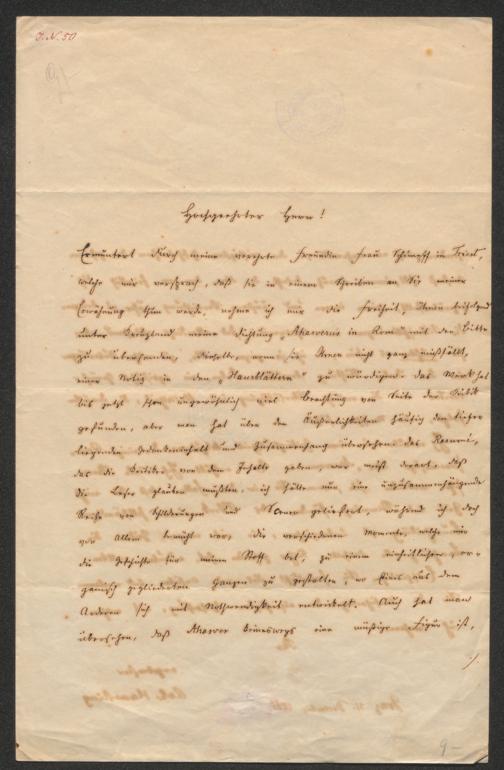 I.N. 50
Hochgeehrter Herr!
Ermuntert durch meine verehrte Freundin Frau in Triest,
welche mir versprach, daß sie in einem Schreiben an Sie meiner
Erwähnung thun werde, nehme ich mir die Freiheit, Ihnen
unter Kreuzband meine Dichtung „Ahasverus in Rom" mit der Bitte
zu übersenden, dieselbe, wenn sie Ihnen nicht ganz mißfällt,
einer Notiz in den „Hausblättern" zu würdigen. Das Werk hat
bis jetzt schon ungewöhnlich viel Beachtung von Seite der Kritik
gefunden, aber man hat über den Äußerlichkeiten häufig den tiefer
liegenden Gedankeninhalt und Zusammenhang übersehen. Das Resumé,
das die Kritiker von dem Inhalte gaben, war meist derart, daß
die Leser glauben mußten, ich hätte nur eine unzusammenhängende
Reihe von Schilderungen und Scenen geliefert, während ich doch
vor Allem bemüht war, die verschiedenen Momente, welche mir
die Geschichte für meinen Stoff bot, zu einem einheitlichen, or-
ganisch gegliederten Ganzen zu gestalten, wo Eines aus dem
Anderen sich mit Nothwendigkeit entwickelt. Auch hat man
übersehen, daß Ahasver keineswegs eine müßige Figur ist,
./.
9-